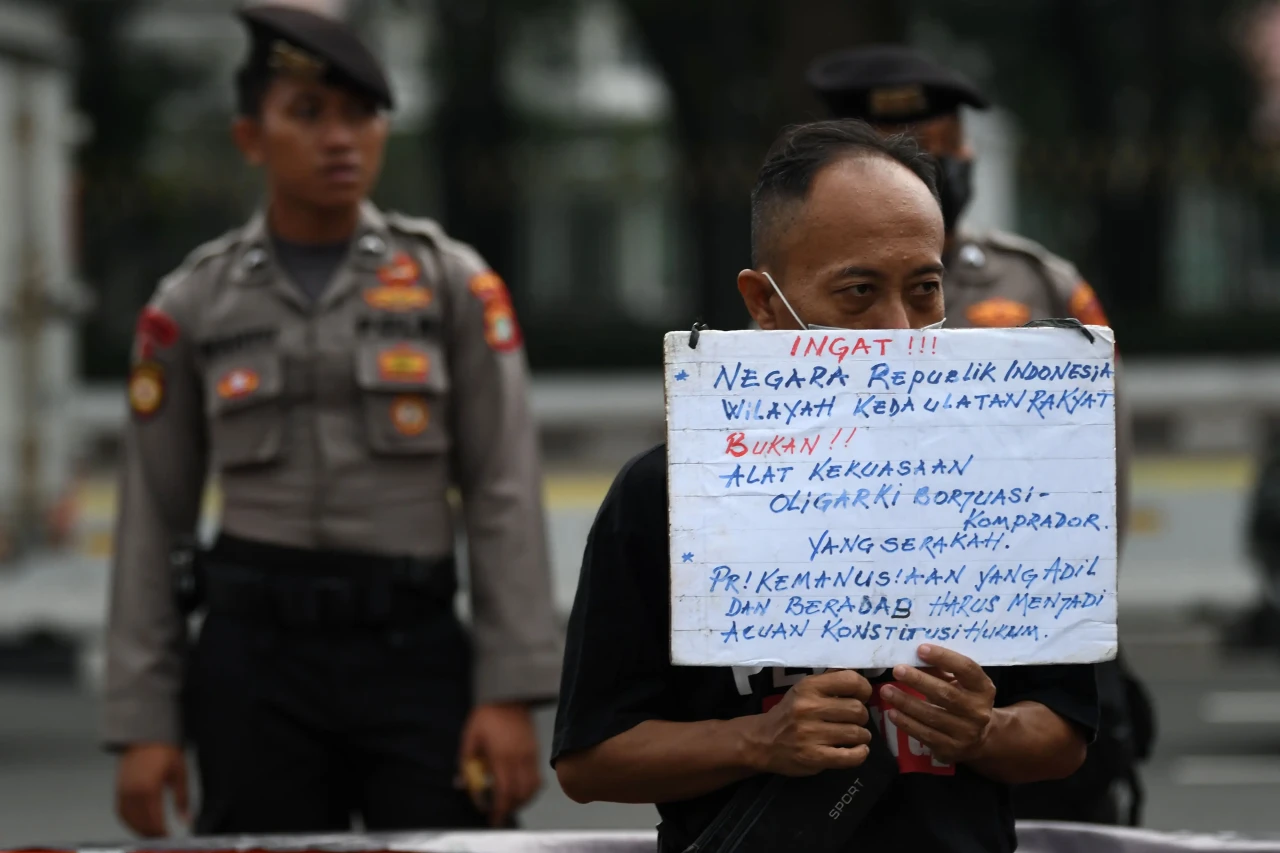 INGAT !!!
* NEGARA REPUBLIK INDONESIA
WILAYAH KEDAULATAN RAKYAT
BUKAN !!
ALAT KEKUASAAN
OLIGARKI BORJUASI-
KOMPRADOR.
YANG SERAKAH.
* PR!KEMANUS!AAN YANG ADIL
DAN BERADAB HARUS MENJADI
ACUAN KONSTITUSI HUKUM.
SPORT